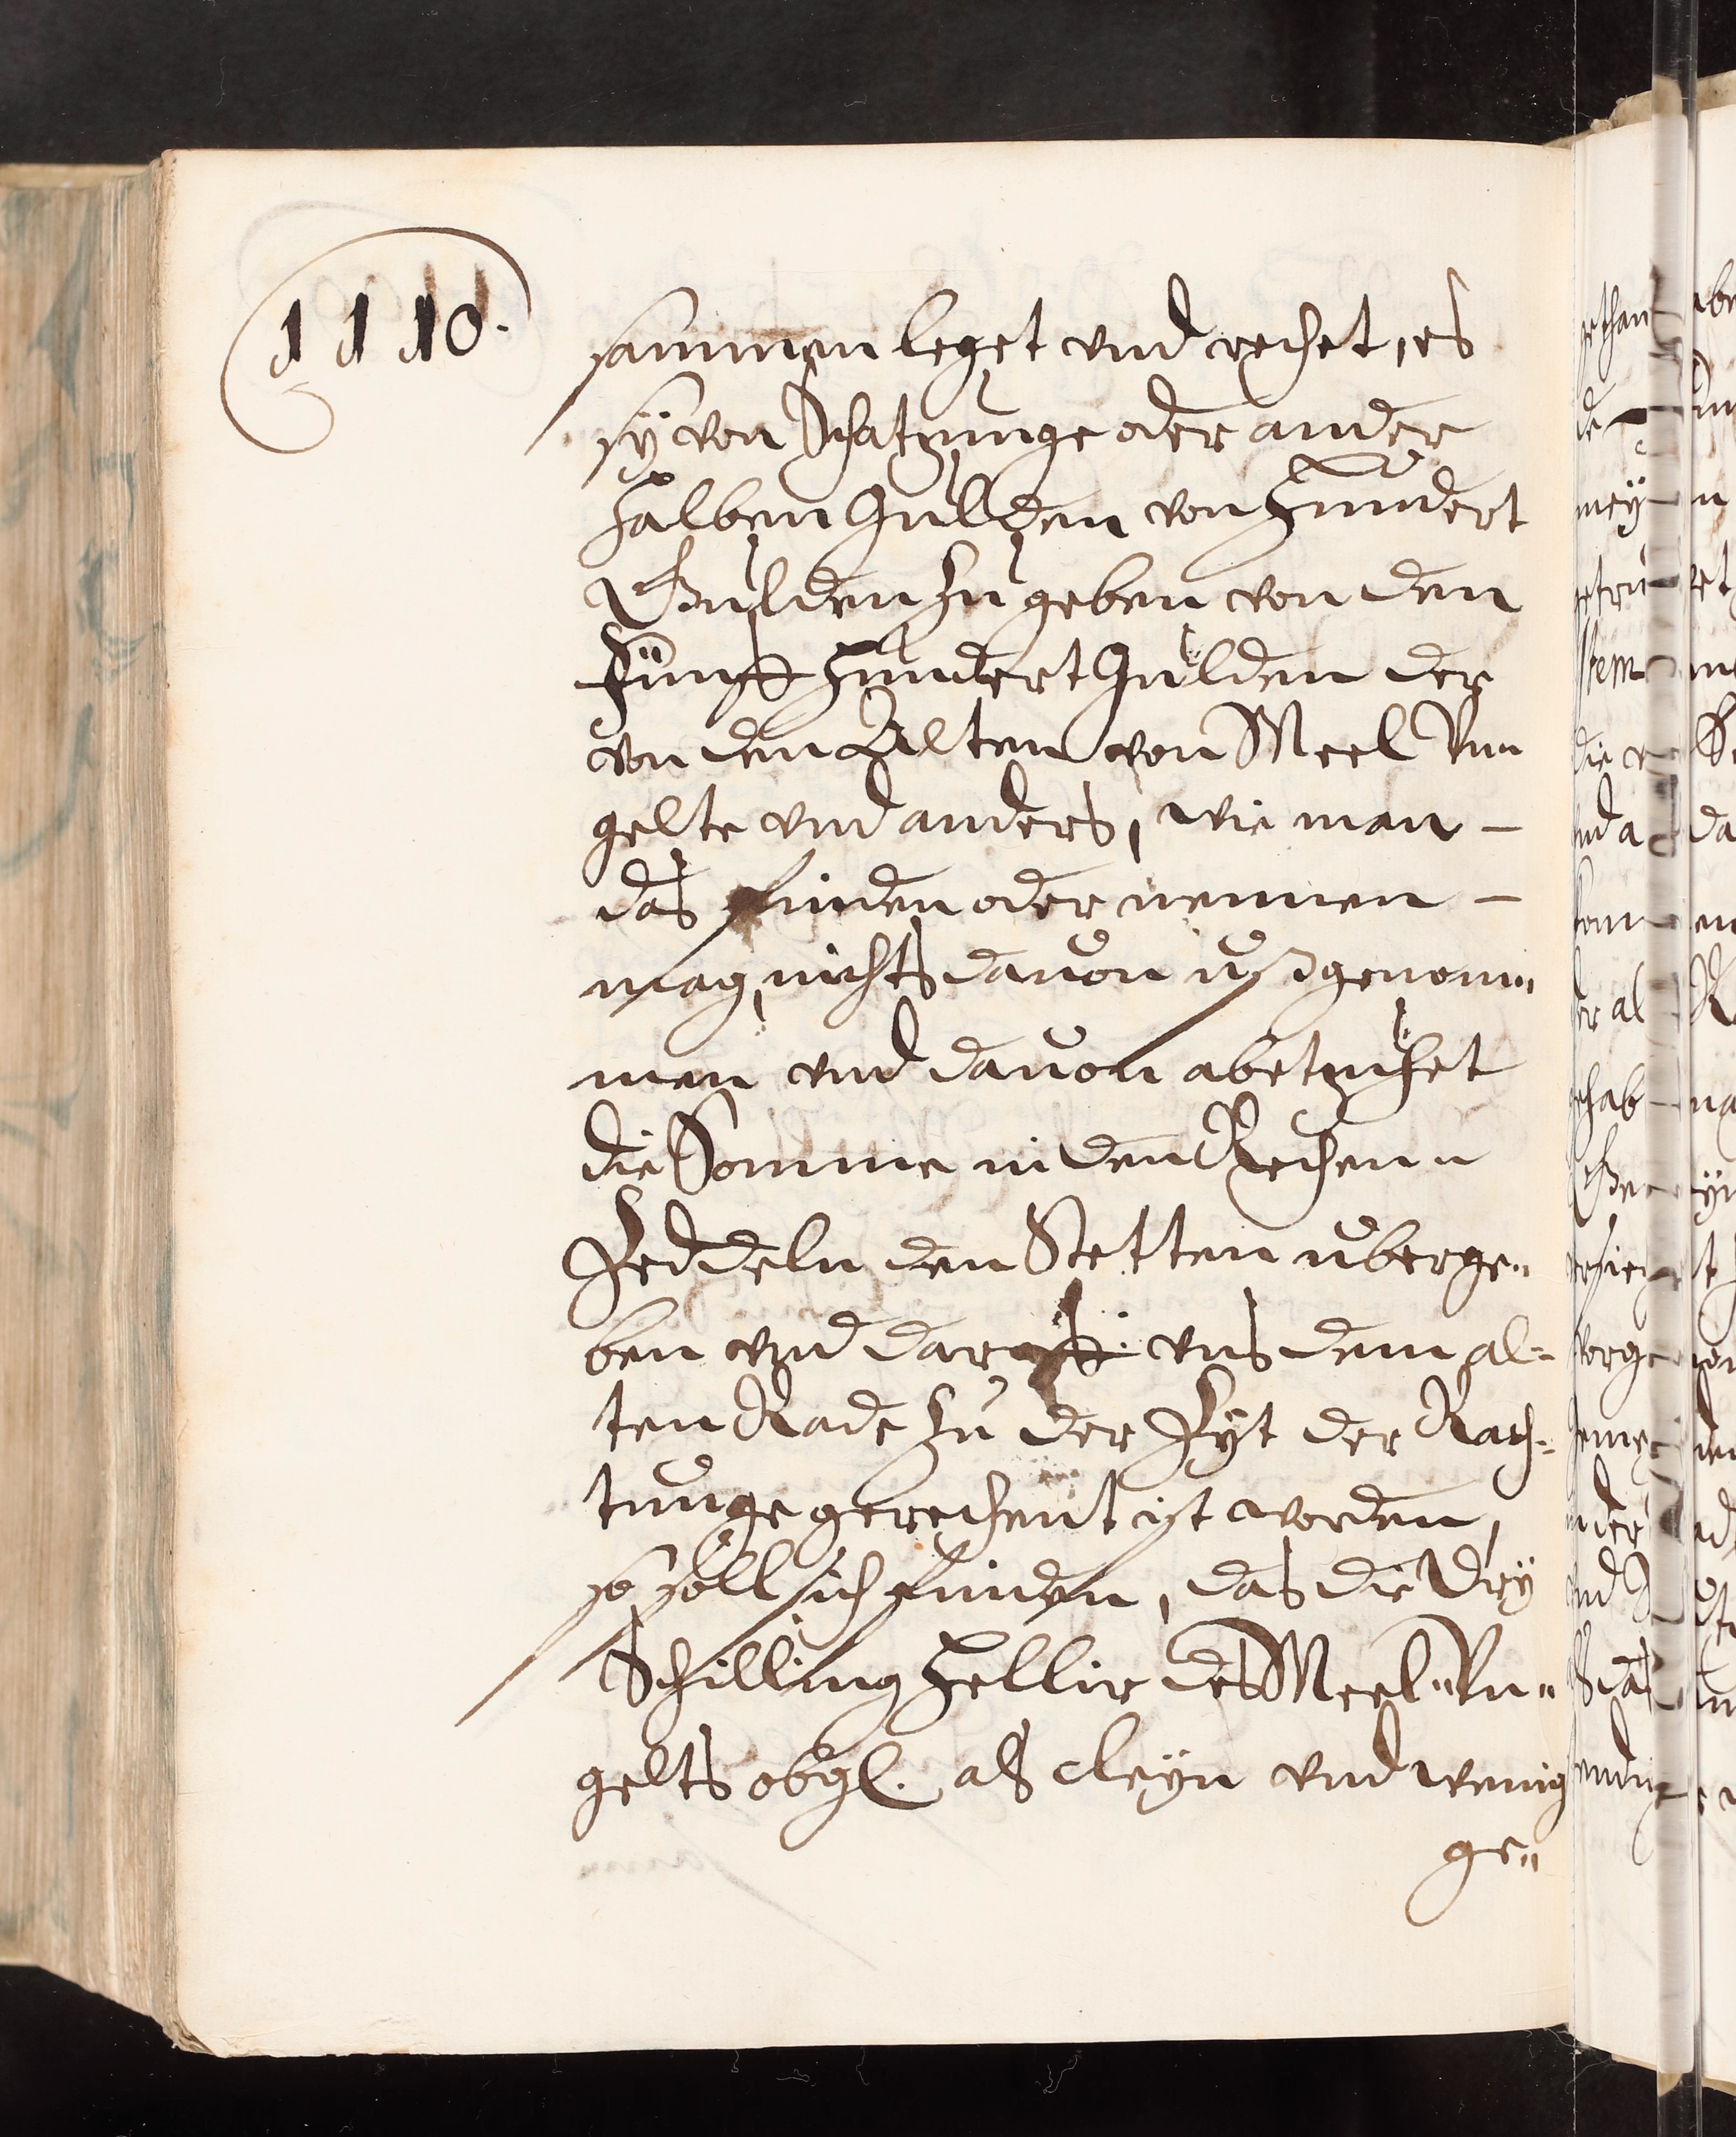 1110.
sammen leget vnd rechet, es
sÿ von Schatzunge oder ander
halben Gulden von Hundert
Gulden zu geben von den
Fünff Hundert Gulden der
von den Alten von Meel Vn„
gelte vnd anders, wie man –
das finden oder nennen –
mag, nichts dauon ußgenom„
men vnd dauon abetzuhet
die Somme in den Rechen„
Zeddeln den Stetten uberge„
ben vnd vns dem al„
ten Rade zu der Zÿt der Rach„
tunge gerechent ist worden,
so soll sich finden, das die Drÿ
Schilling Hellir des Meel„Vn„
gelts obgl. als cleyn vnd wenig
ge„